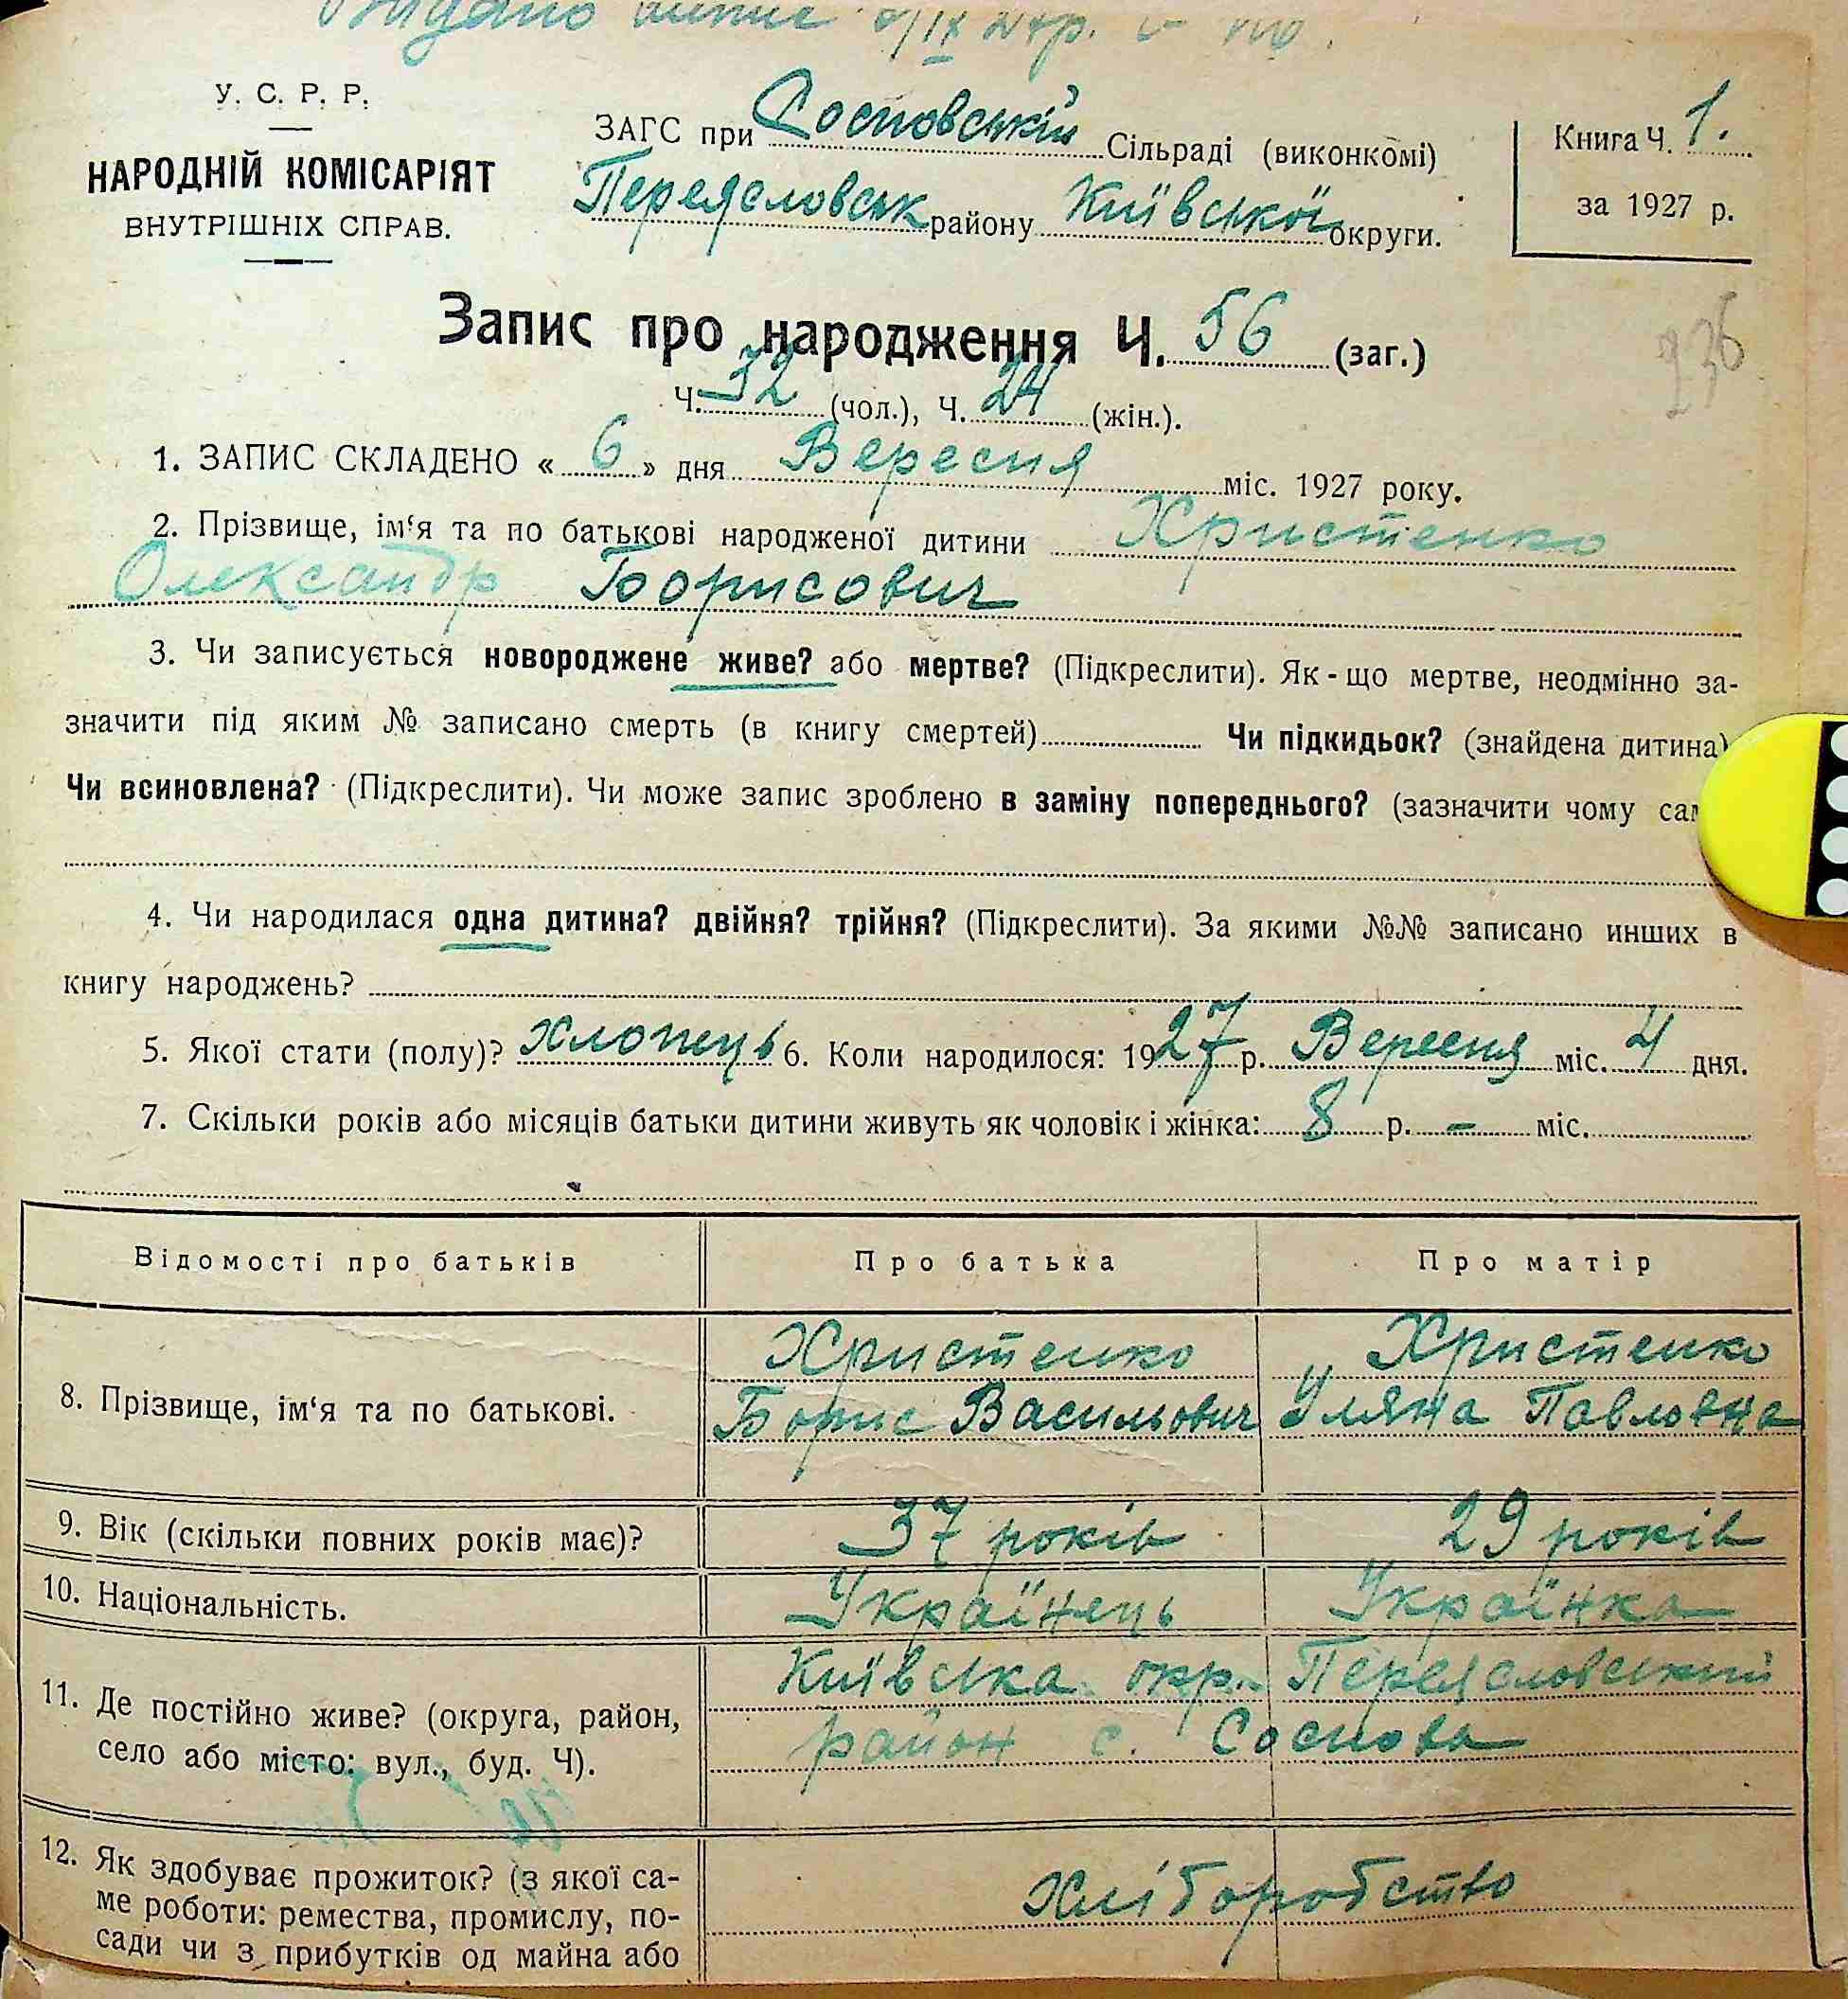 Видано витяг 6/IX 27р.
У. С. Р. Р.
НАРОДНІЙ КОМІСАРІЯТ
ВНУТРІШНІХ СПРАВ.
ЗАГС при Сосновській Сільраді (виконкомі)
Переясловськ району Київської округи.
Книга Ч. 1.
за 1927 р.
Запис про народження Ч. 56 (заг.)
936
Ч. 32 (чол.), Ч. 24 (жін.).
1. ЗАПИС СКЛАДЕНО « 6 » дня Вересня міс. 1927 року.
2. Прізвище, ім‘я та по батькові народженої дитини Христенко
Олександр Борисович
3. Чи записується новороджене живе? або мертве? (Підкреслити). Як-що мертве, неодмінно за-
значити під яким № записано смерть (в книгу смертей) Чи підкидьок? (знайдена дитина)
Чи всиновлена? (Підкреслити). Чи може запис зроблено в заміну попереднього? (зазначити чому
4. Чи народилася одна дитина? двійня? трійня? (Підкреслити). За якими №№ записано инших в
книгу народжень?
5. Якої стати (полу)? хлопець 6. Коли народилося: 1927 р. Вересня міс. 4 дня.
7. Скільки років або місяців батьки дитини живуть як чоловік і жінка: 8 р. – міс.
Відомості про батьків Про батька Про матір
Христенко Христенко
8. Прізвище, ім‘я та по батькові. Борис Васильович Уляна Павловна
9. Вік (скільки повних років має)? 37 років 29 років
10. Національність. Українець Українка
Київська окр. Переясловський
11. Де постійно живе? (округа, район,
район с. Соснова
село або місто: вул., буд. Ч).
12. Як здобуває прожиток? (з якої са-
Хліборобство
ме роботи: ремества, промислу, по-
сади чи з прибутків од майна або